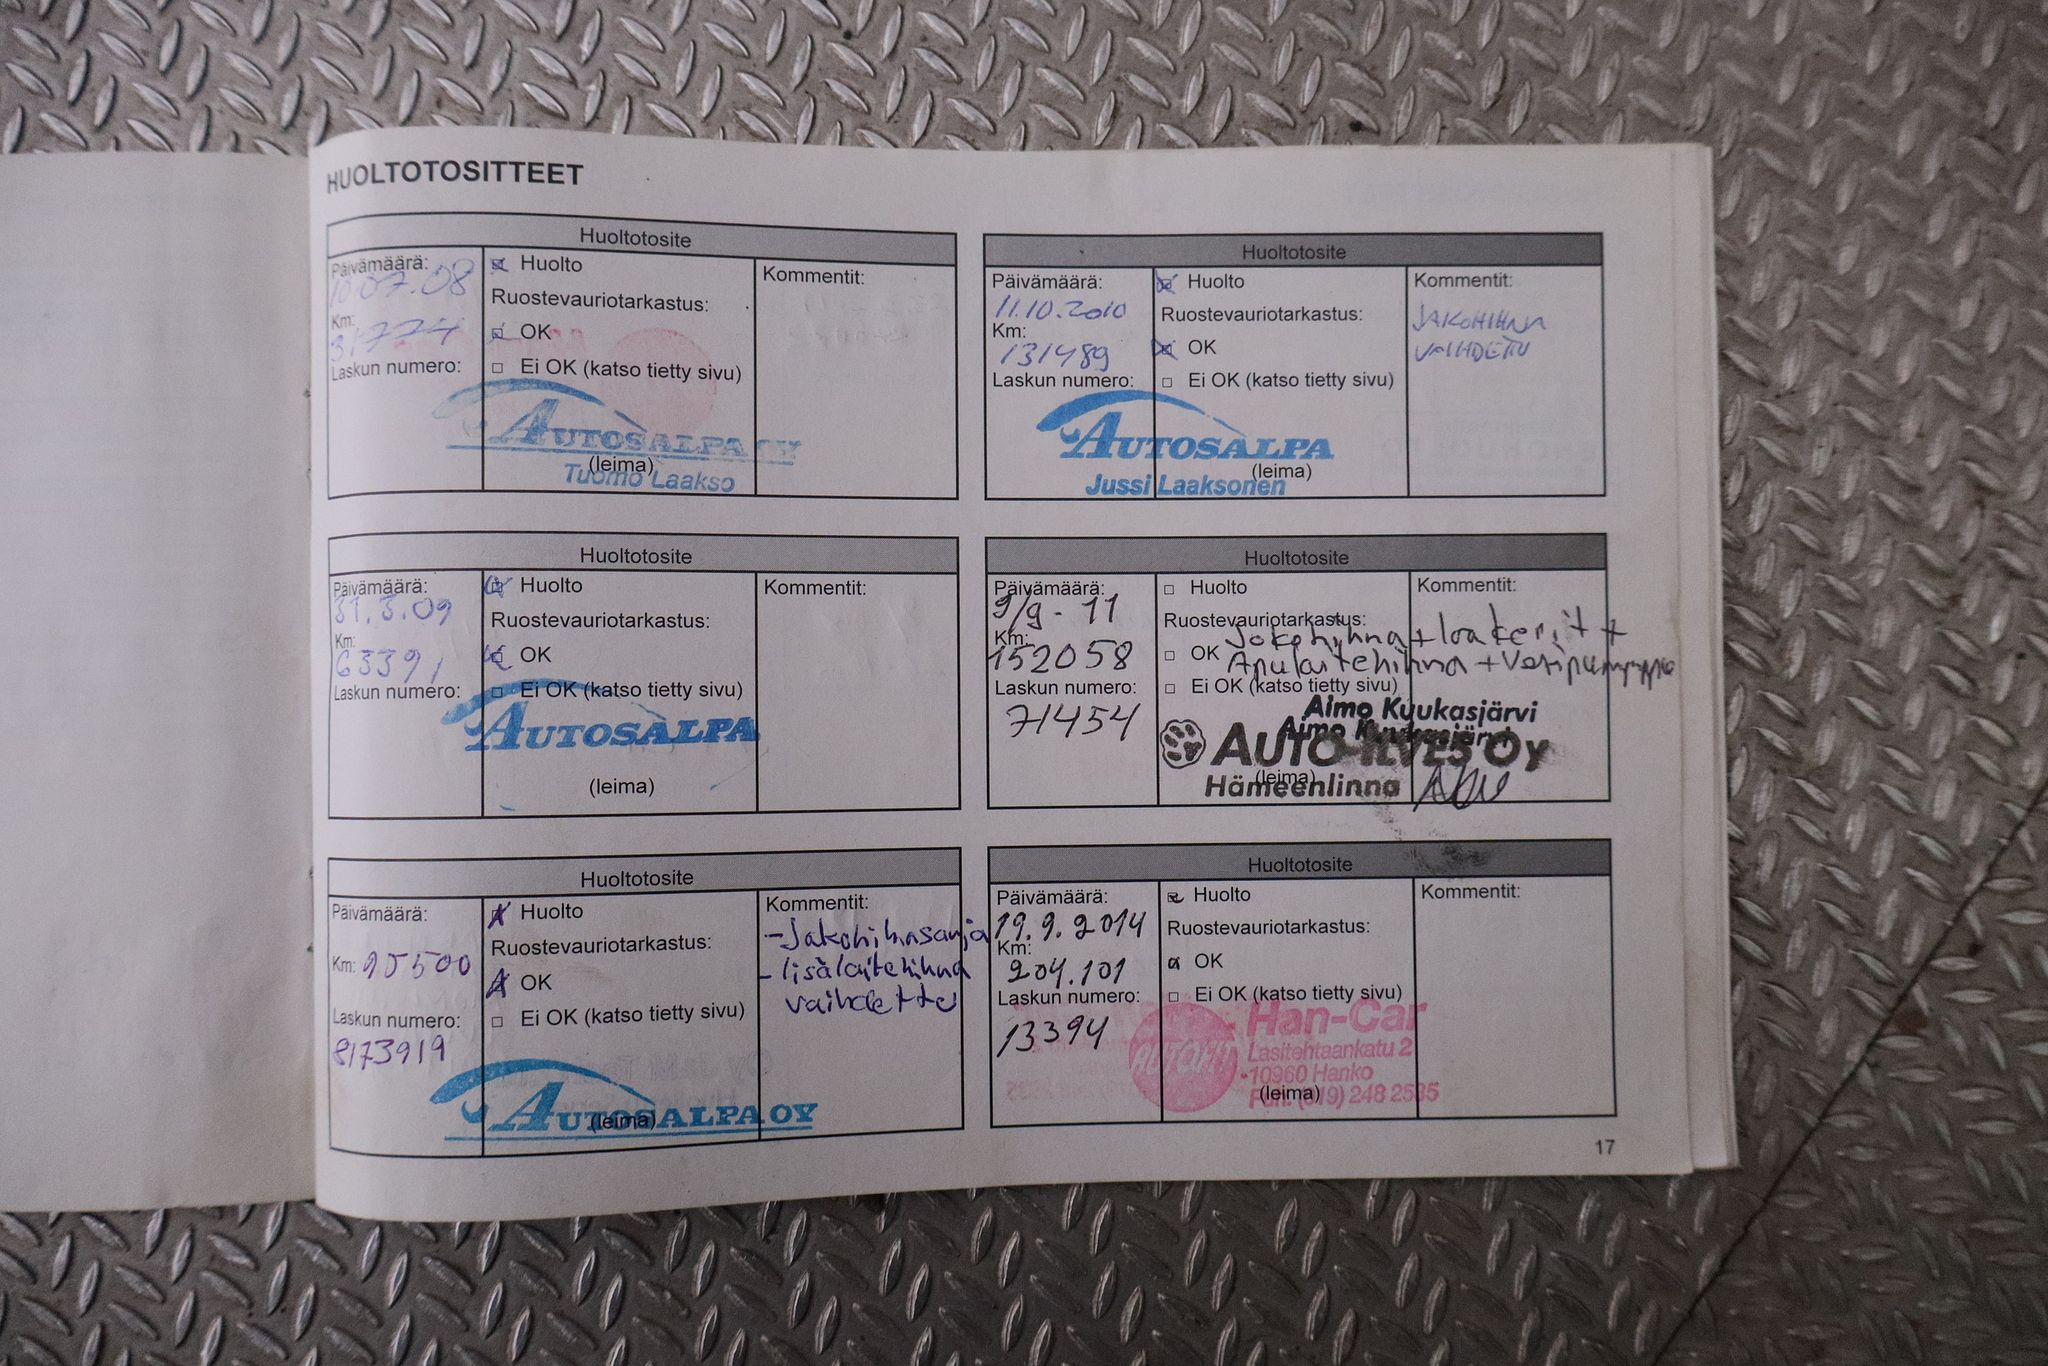 HUOLTOTOSITTEET
Huoltotosite
Päivämäärä:
10.07.08
Km:
31774
Laskun numero:
Huolto
Ruostevauriotarkastus:
OK
Ei OK (katso tietty sivu)
AUTOSALPA OY
(leima)
Tuomo Laakso
Kommentit:
Huoltotosite
Päivämäärä:
31.3.09
Km:
63391
Laskun numero:
Huolto
Ruostevauriotarkastus:
OK
Ei OK (katso tietty sivu)
AUTOSALPA
(leima)
Kommentit:
Huoltotosite
Päivämäärä:
Km: 95500
Laskun numero:
8173919
Huolto
Ruostevauriotarkastus:
OK
Ei OK (katso tietty sivu)
AUTOSALPA OY
(leima)
Kommentit:
- Jakohihnasarja
- lisälaitehihna
vaihdettu
Huoltotosite
Päivämäärä:
11.10.2010
Km:
131489
Laskun numero:
Huolto
Ruostevauriotarkastus:
OK
Ei OK (katso tietty sivu)
AUTOSALPA
(leima)
Jussi Laaksonen
Kommentit:
JAKOHIHNA
VAIHDETTU
Huoltotosite
Päivämäärä:
9/9-11
Km:
152058
Laskun numero:
71454
Huolto
Ruostevauriotarkastus:
OK
Ei OK (katso tietty sivu)
Kommentit:
Jakohihna + laakerit +
Apulaitehihna + Vesipumppu
Aimo Kuukasjärvi
Aimo Kuukasjärvi
AUTO-ILVES OY
(leima)
Hämeenlinna
Huoltotosite
Päivämäärä:
19.9.2014
Km:
204.101
Laskun numero:
13394
Huolto
Ruostevauriotarkastus:
OK
Ei OK (katso tietty sivu)
AUTOFIT
Han-Car
Lasitehtaankatu 2
10960 Hanko
Puh. (019) 248 2585
(leima)
Kommentit:
17